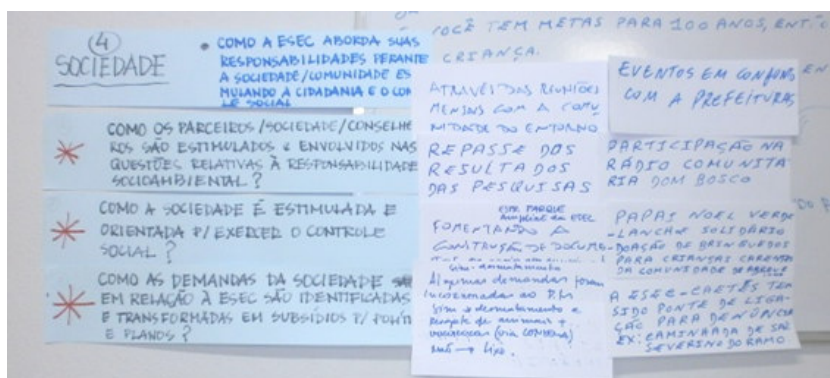 VOCÊ TEM METAS PARA 100 ANOS,
CRIANÇA.
4
SOCIEDADE
• COMO A ESEC ABORDA SUAS
RESPONSABILIDADES PERANTE
A SOCIEDADE/COMUNIDADE ES
MULANDO A CIDADANIA E O CON
LE SOCIAL
COMO OS PARCEIROS/SOCIEDADE/CONSELHE
ROS SÃO ESTIMULADOS E ENVOLVIDOS NAS
QUESTÕES RELATIVAS À RESPONSABILIDADE
SOCIOAMBIENTAL?
COMO A SOCIEDADE É ESTIMULADA E
ORIENTADA P/ EXERCER O CONTROLE
SOCIAL?
COMO AS DEMANDAS DA SOCIEDADE
EM RELAÇÃO À ESEC SÃO IDENTIFICADAS
E TRANSFORMADAS EM SUBSÍDIOS P/ POLÍT
E PLANOS?
ATRAVÉS DAS REUNIÕES
MENSAIS COM A COMU
NIDADE DO ENTORNO
REPASSE DOS
RESULTADOS
DAS PESQUISAS
FOMENTANDO A
CONSTRUÇÃO DE DOCUME
Algumas demandas foram
incorporadas ao P.M
Sim → desmatamento e
resgate de animais +
(via CONDEMA)
não → lixo.
EVENTOS EM CONJUNTO
COM A PREFEITURA
PARTICIPAÇÃO NA
RÁDIO COMUNITÁ
RIA DOM BOSCO
PAPAI NOEL VERDE
-LANCHE SOLIDÁRIO
-DOAÇÃO DE BRINQUEDOS
PARA CRIANÇAS CARENTES
DA COMUNIDADE DE
A ESEC-CAETÉS TEM
SIDO PONTE DE LIGA-
ÇÃO PARA DENÚNCIA
EX: CAMINHADA DE SÃO
SEVERINO DO RAMO